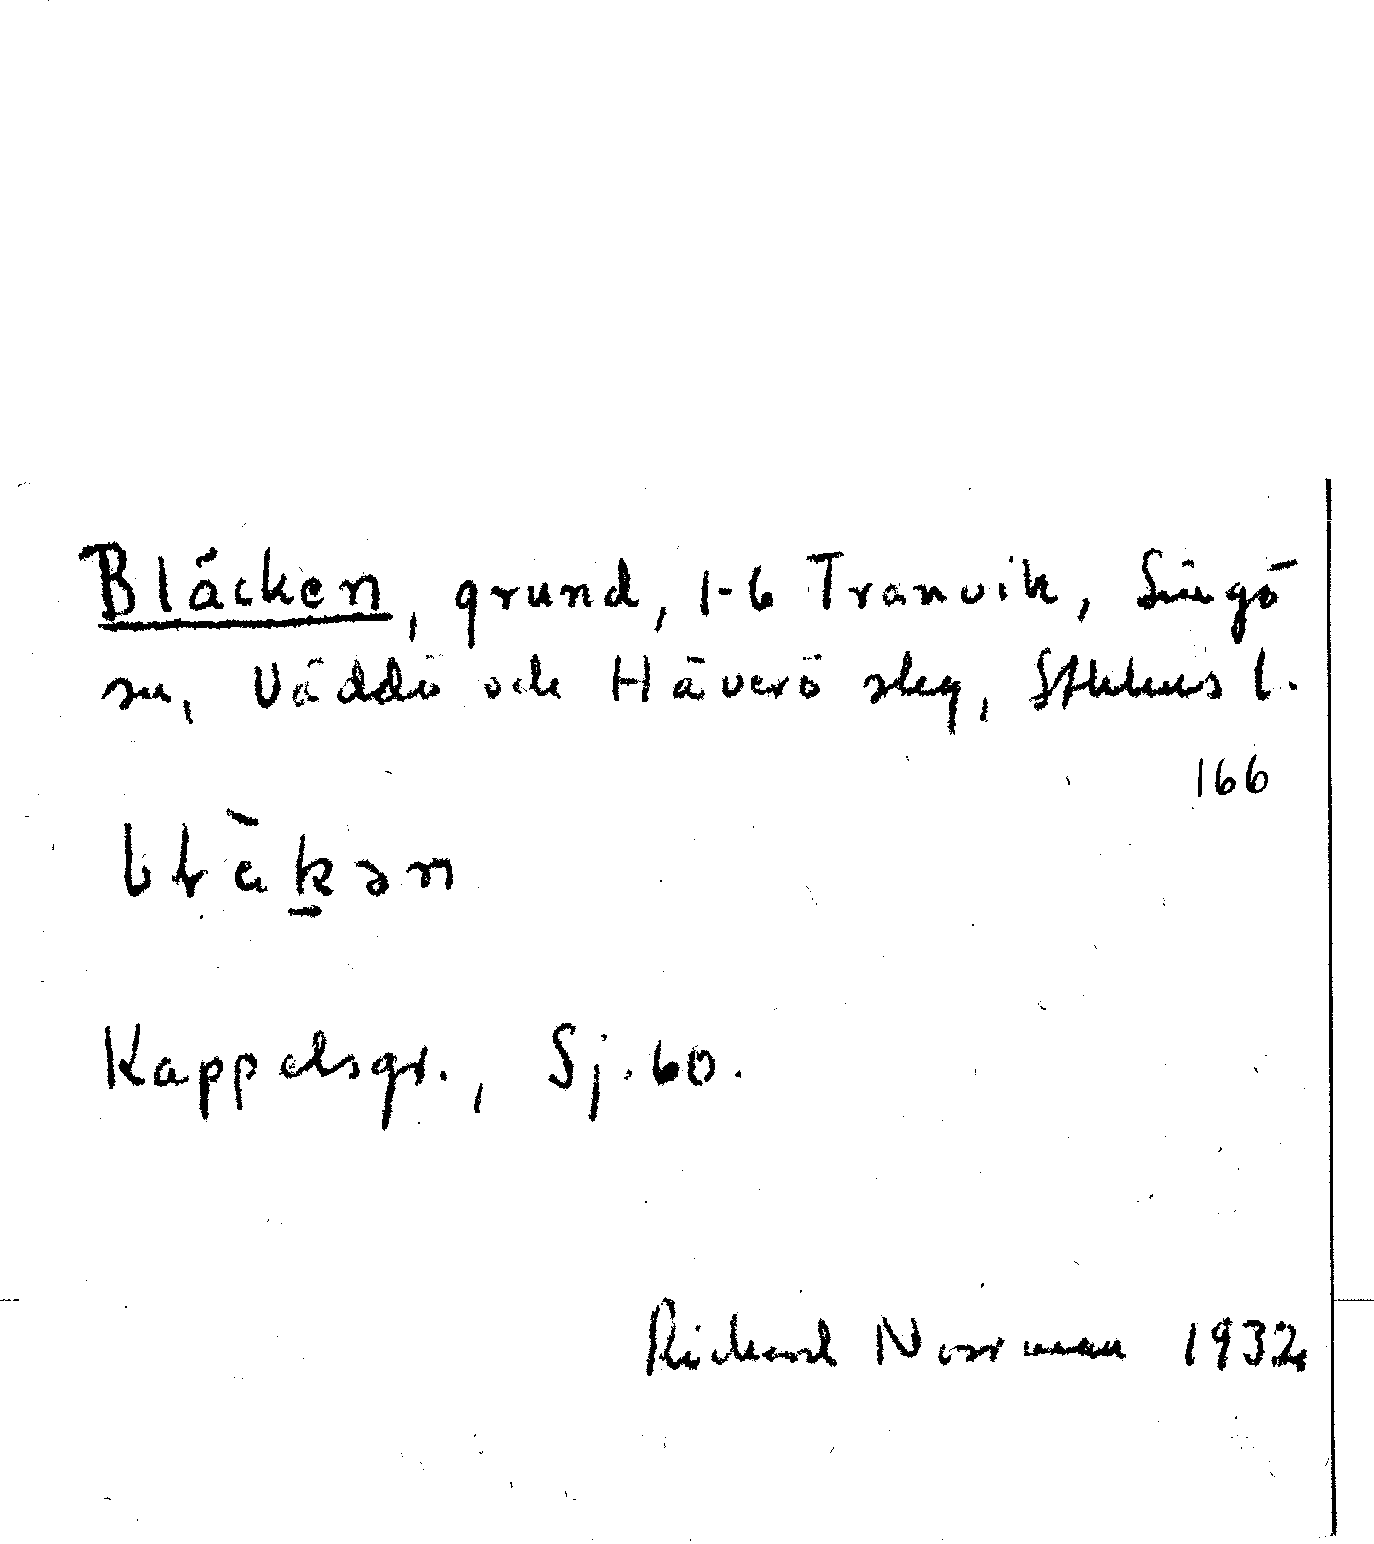 Bläcken, grund, 1-6 Tranvik, Singö
sn, Väddö och Häverö skg, Sthlms l.
166
blä̀k̠ən
Kappelsgr., Sj. 60.
Rickard Norrman 1932